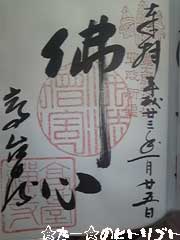 奉拝 平成廿三年一月廿五日
佛心
高台寺
☆たー☆のヒトリゴト